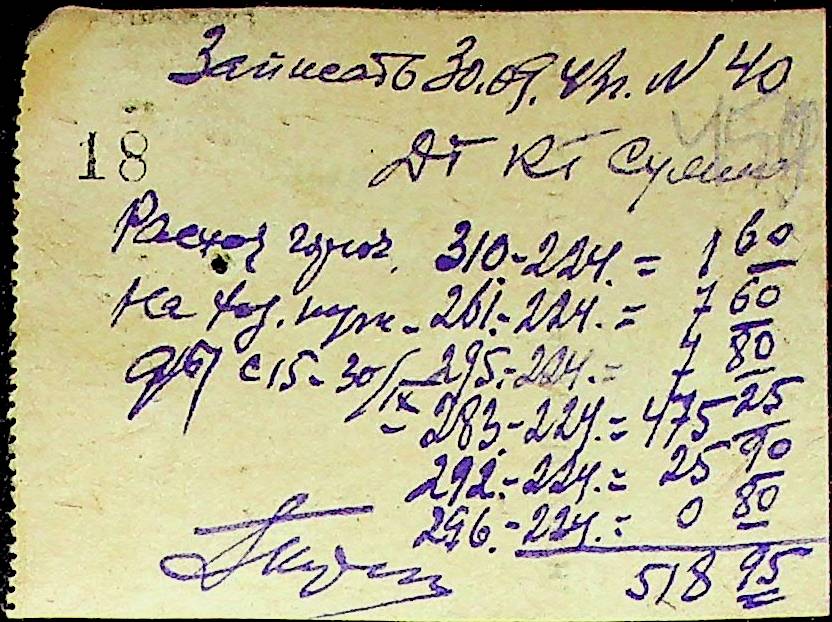 Записать 30.09.41г. N 40
18
Дт Кт Сумма
Расход 310.-224. = 1 60
На хоз. нуж. 261.-224. = 7 60
с 15-30/IX 295.-224. = 7 80
283.-224. = 475 25
292.-224. = 25 90
296.-224. = 0 80
518 95